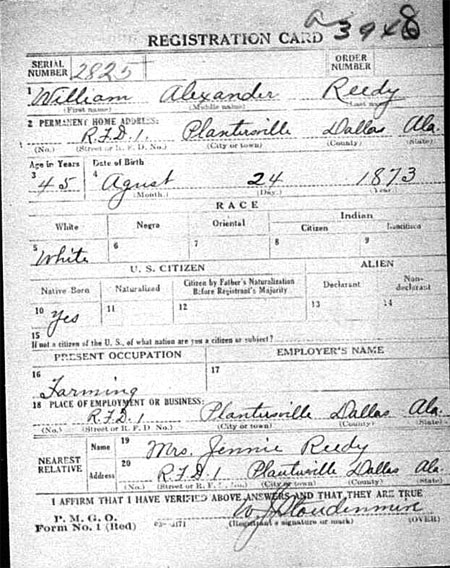 a 3948
REGISTRATION CARD
SERIAL NUMBER 2825 ORDER NUMBER
1 William Alexander Reedy
(First name) (Middle name) (Last name)
2 PERMANENT HOME ADDRESS:
R.F.D. 1. Plantersville Dallas Ala.
(No.) (Street or R. F. D. No.) (City or town) (County) (State)
Age in Years Date of Birth
3 45 4 Agust 24 1873
(Month.) (Day.) (Year.)
RACE
White Negro Oriental Indian
Citizen
5 White 6 7 8 9
U. S. CITIZEN ALIEN
Native Born Naturalized Citizen by Father's Naturalization Before Registrant's Majority Declarant Non-declarant
10 Yes 11 12 13 14
15
If not a citizen of the U. S., of what nation are you a citizen or subject?
PRESENT OCCUPATION EMPLOYER'S NAME
16 Farming 17
18 PLACE OF EMPLOYMENT OR BUSINESS:
R.F.D. 1 Plantersville Dallas Ala.
(No.) (Street or R. F. D. No.) (City or town) (County) (State)
NEAREST RELATIVE
Name 19 Mrs. Jennie Reedy
Address 20 R.F.D. 1 Plantersville Dallas Ala.
(No.) (Street or R. F. D. No.) (City or town) (County) (State)
I AFFIRM THAT I HAVE VERIFIED ABOVE ANSWERS AND THAT THEY ARE TRUE
P. M. G. O.
Form No. 1 (Red) (Registrant's signature or mark) (OVER)